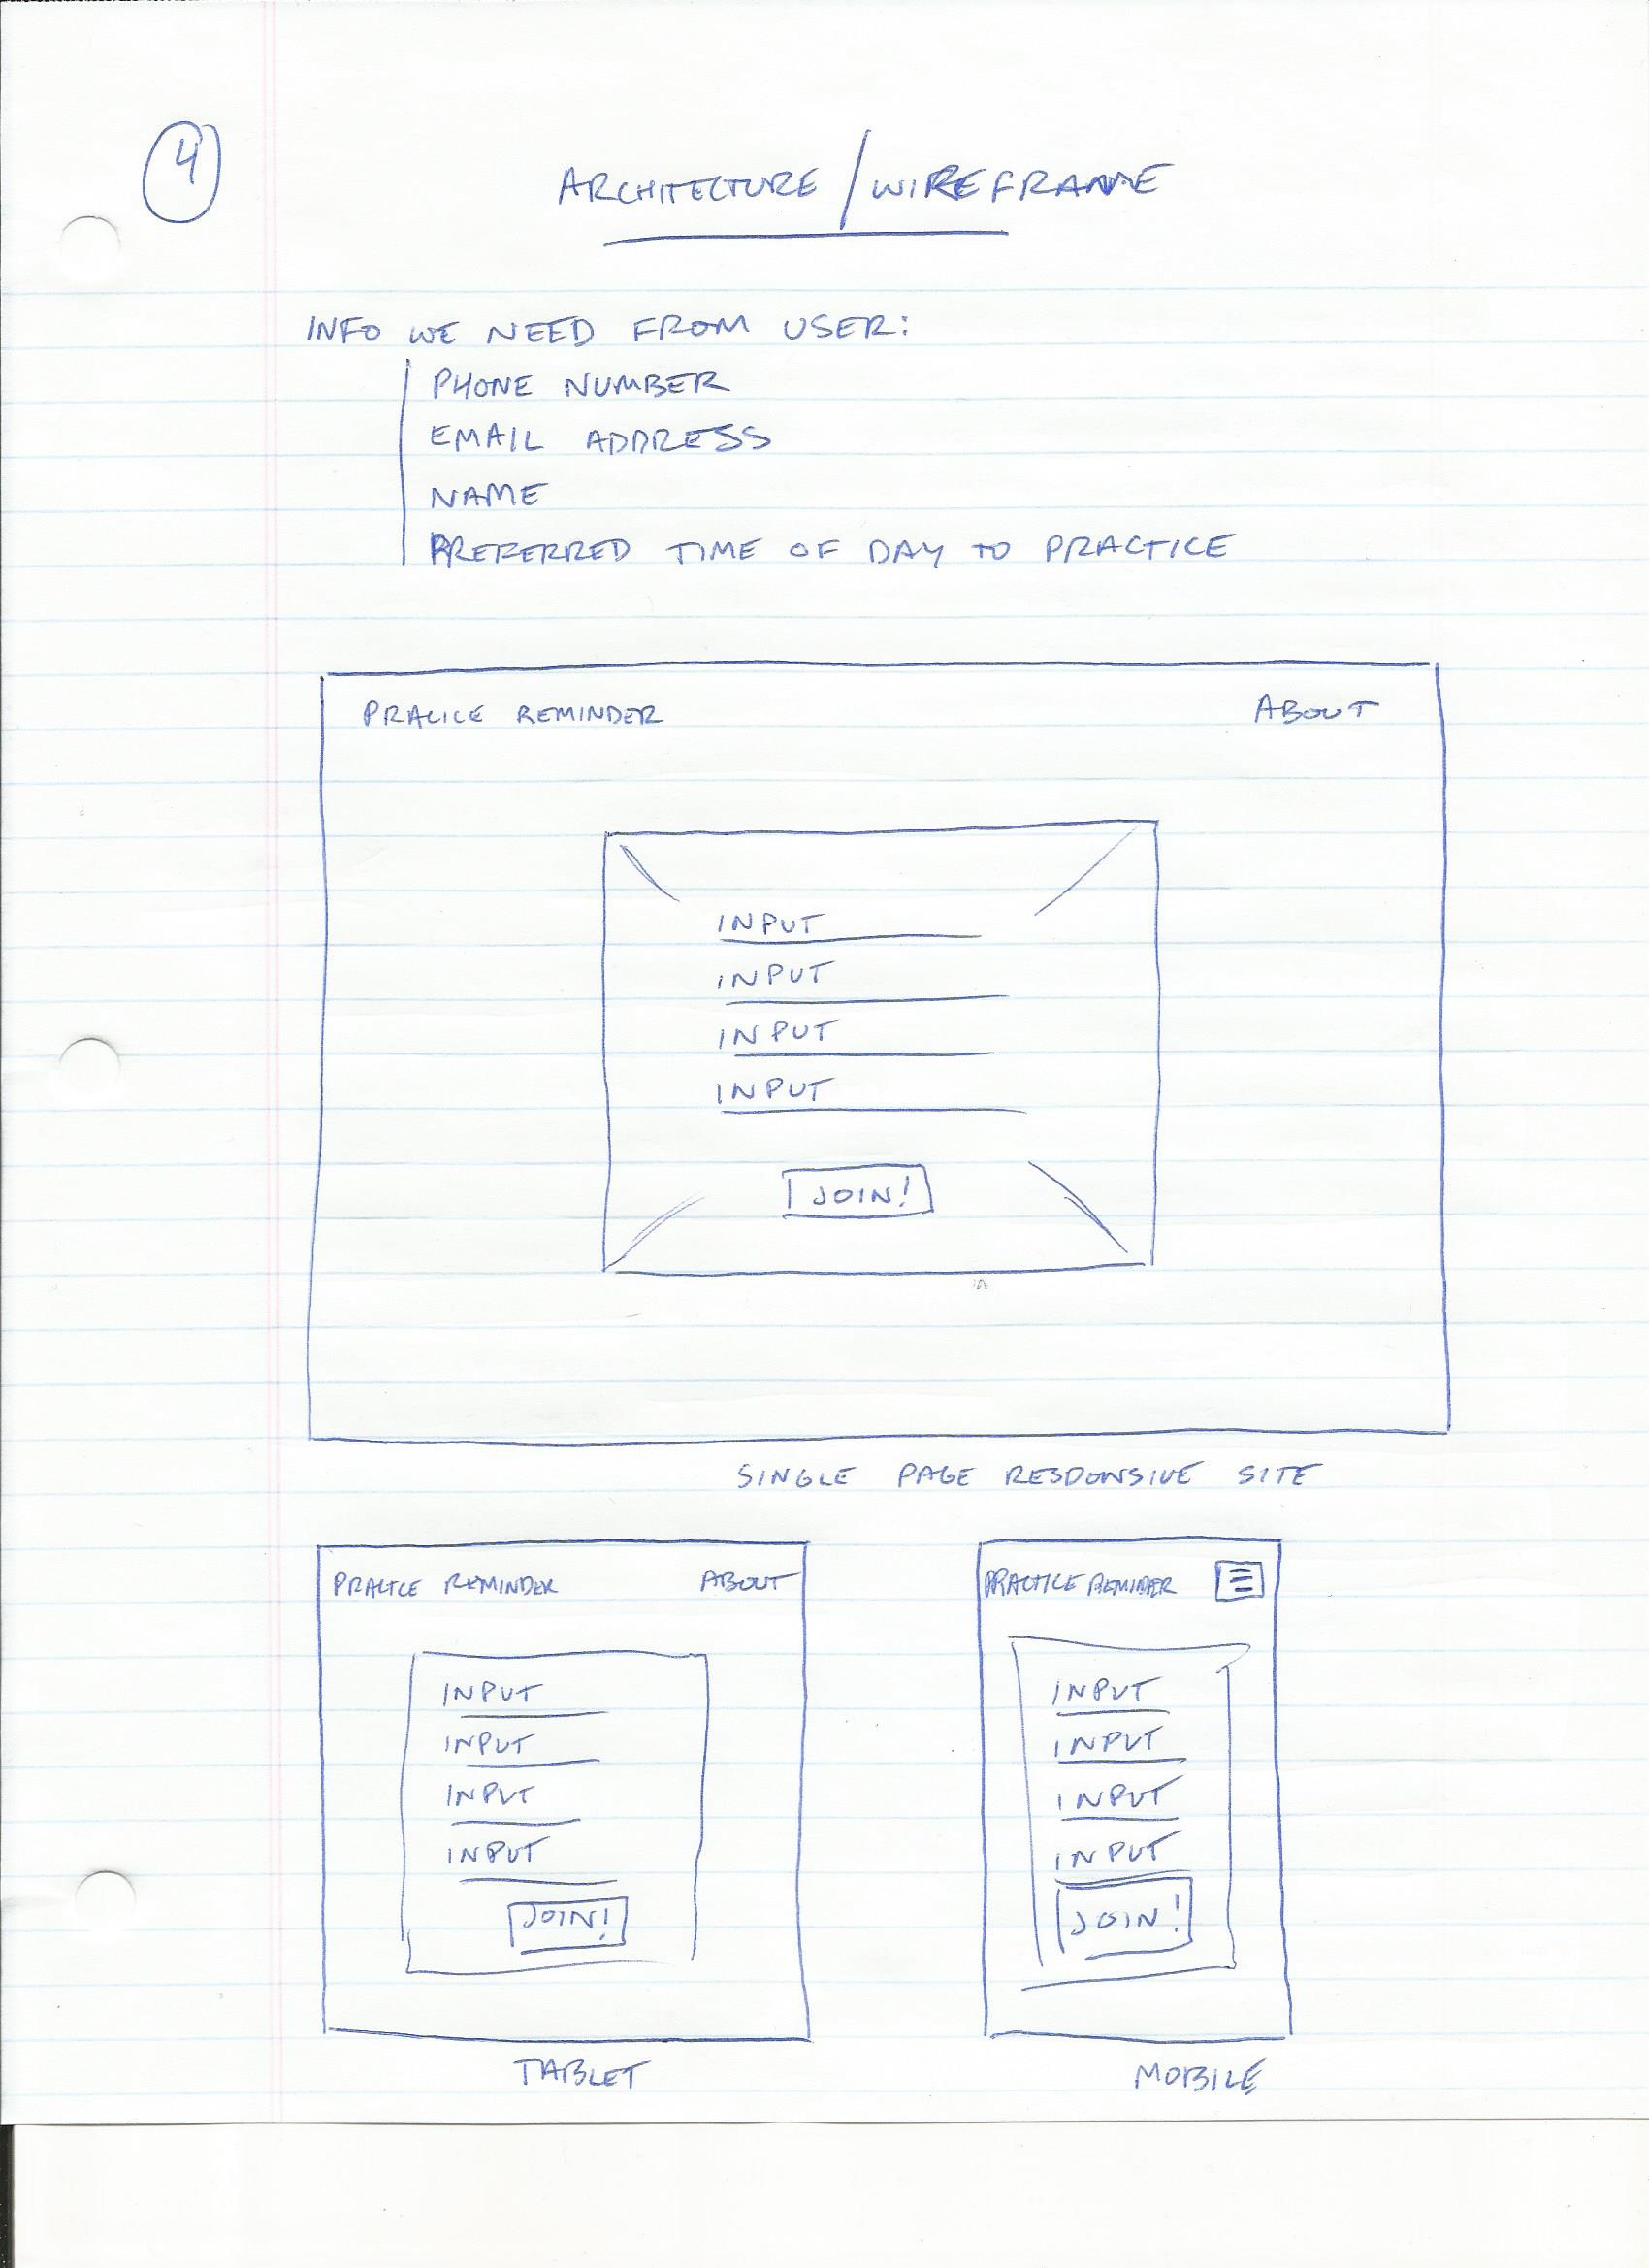 4
ARCHITECTURE / WIREFRAME
INFO WE NEED FROM USER:
PHONE NUMBER
EMAIL ADDRESS
NAME
PREFERRED TIME OF DAY TO PRACTICE
PRACICE REMINDER ABOUT
INPUT
INPUT
INPUT
INPUT
JOIN!
SINGLE PAGE RESPONSIVE SITE
PRACTCE REMINDER ABOUT
INPUT
INPUT
INPUT
INPUT
JOIN!
TABLET
PRACTICE REMINDER
INPUT
INPUT
INPUT
INPUT
JOIN!
MOBILE